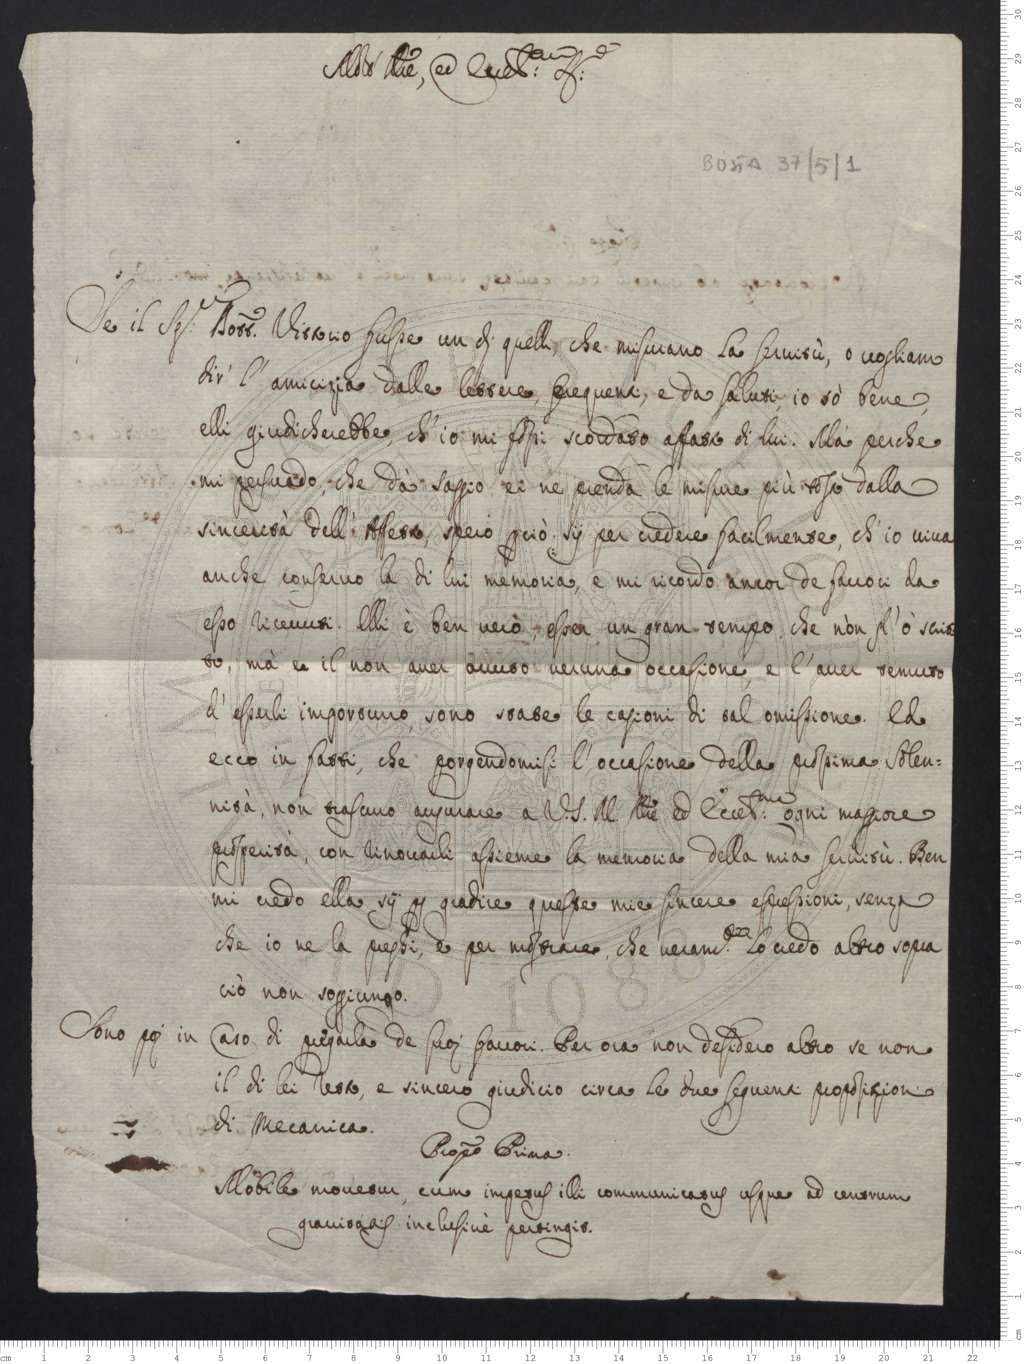 Molto Illre, ed Eccelmo Sr.
BUSTA 37/5/1
Se il Sigr. Dottr. Vittorio fusse un di quelli, che misurano la servitù, o vogliam
dir l'amicizia dalle lettere frequenti, e da saluti, io sò bene,
elli giudicherebbe, ch'io mi fossi scordato affatto di lui. Mà perche
mi persuado, che dà saggio ei ne prenda le misure più tosto dalla
sincerità dell'Affetto, spero perciò sij per credere facilmente, ch'io viva
anche conservo la di lui memoria, e mi ricordo ancor de favori da
esso ricevuti. Elli è ben verò, esser un gran tempo che nòn gl'ò scrit
to, mà e il non aver avuto veruna occasione, e l'aver temuto
d'esserli importuno, sono state le cagioni di tal omissione. Ed
ecco in fatti, che porgendomisi l'occasione della prossima Solen=
nità, non trascuro augurare a V.S. M Illre ed Eccelma: ogni maggiore
prosperità, con rinovarli assieme la memoria della mia servitù. Ben
mi credo ella sij p gradire queste mie sincere espressioni, senza
che io ne la preghi, e per mostrare, che veramte. lo credo altro sopra
ciò non soggiungo.
Sono poi in Caso di pregarla de suoi favori. Per ora non desidero altro se non
il di lei retto, e sincero giudicio circa le due seguenti proposizioni
di Mecanica.
Propo Prima.
Mobile movetur, cum impetus illi communicatus usque ad centrum
gravitatis inclusivè pertingit.